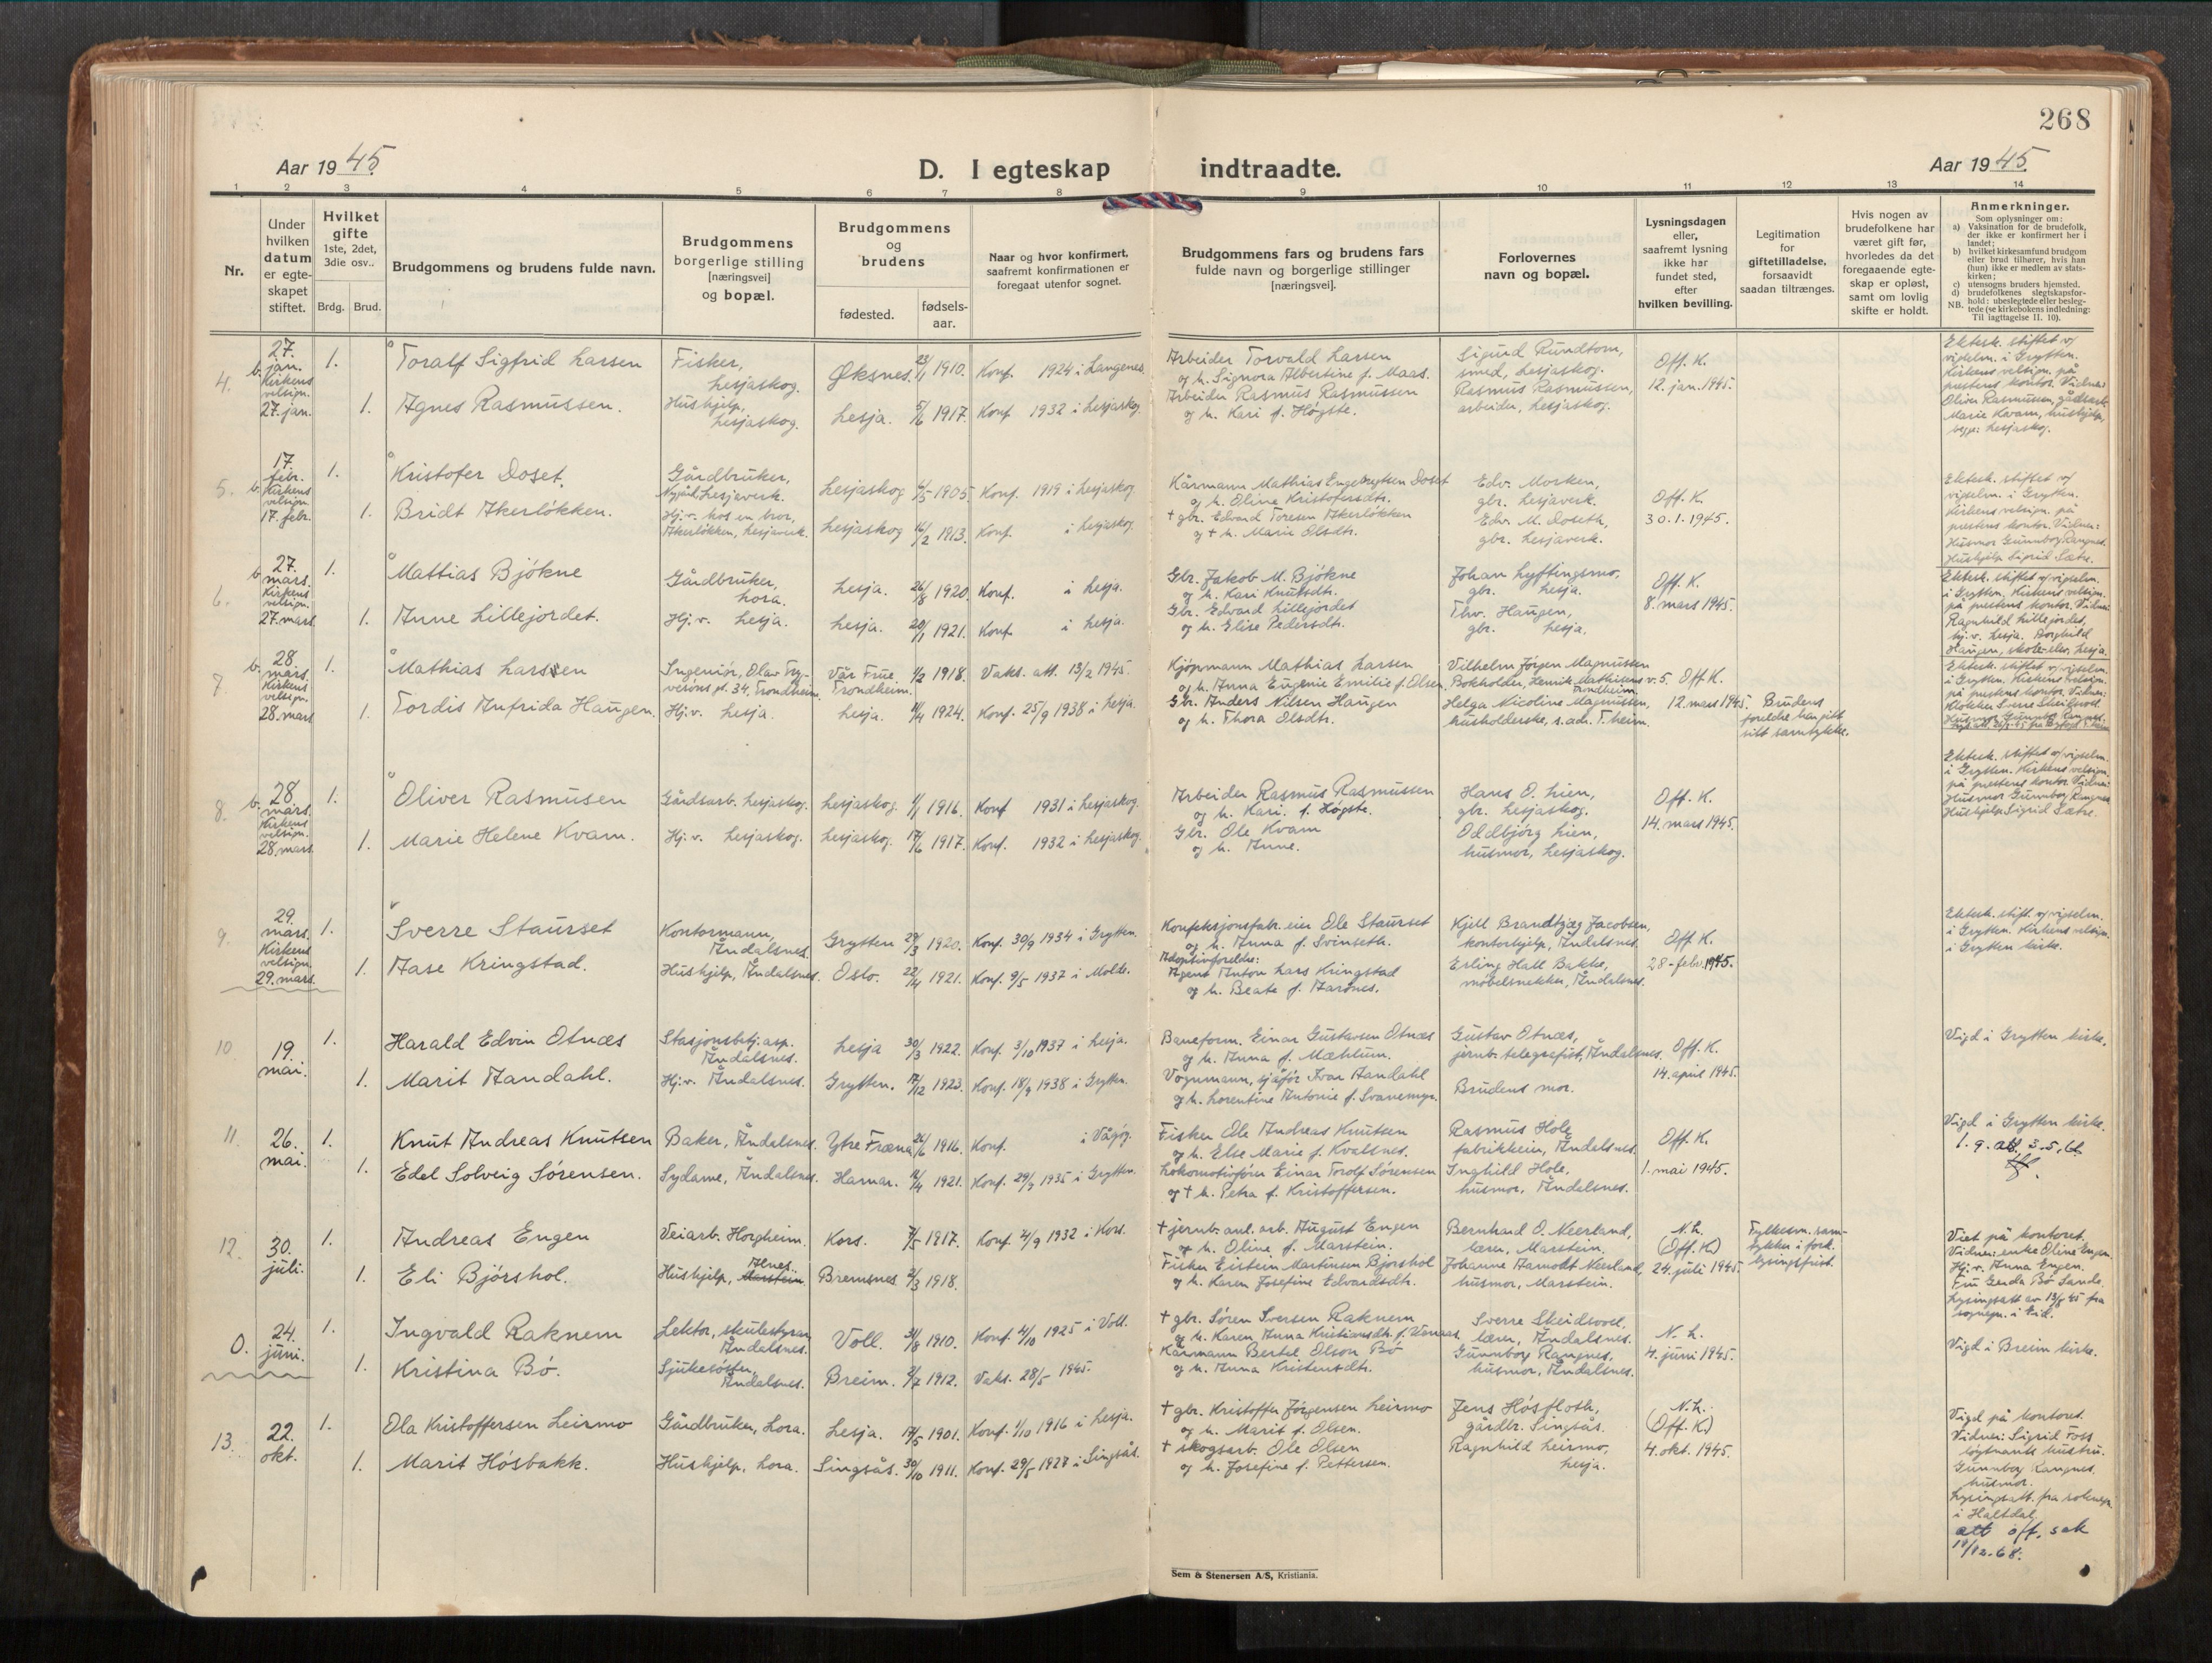 268
Aar 1945.
D. I egteskap indtraadte.
Aar 1945.
1 2 3 4 5 6 7 8 9 10 11 12 13 14
Nr.
Under hvilken datum er egte-skapet stiftet.
Hvilket gifte 1ste, 2det, 3die osv..
Brdg. Brud.
Brudgommens og brudens fulde navn.
Brudgommens borgerlige stilling [næringsvei] og bopæl.
Brudgommens og brudens
fødested.
fødsels-aar.
Naar og hvor konfirmert, saafremt konfirmationen er foregaat utenfor sognet.
Brudgommens fars og brudens fars fulde navn og borgerlige stillinger [næringsvei].
Forlovernes navn og bopæl.
Lysningsdagen eller, saafremt lysning ikke har fundet sted, efter hvilken bevilling.
Legitimation for giftetilladelse, forsaavidt saadan tiltrænges.
Hvis nogen av brudefolkene har været gift før, hvorledes da det foregaaende egte-skap er opløst, samt om lovlig skifte er holdt.
Anmerkninger.
Som oplysninger om:
a) Vaksination for de brudefolk, der ikke er konfirmert her i landet;
b) hvilket kirkesamfund brudgom eller brud tilhører, hvis han (hun) ikke er medlem av stats-kirken;
c) utensogns bruders hjemsted.
d) brudefolkenes slegtskapsfor-hold: ubeslegtede eller besleg-tede (se kirkebokens indledning:
NB. Til iagttagelse II. 10).
4. b. 27. jan. Kirkens velsign. 27. jan.
1. Toralf Sigfrid Larsen
Fisker, Lesjaskog.
Øksnes. 23/1 1910. Konf. 1924 i Langenes.
Arbeider Torvald Larsen
og h. Signora Albertine f. Maas.
Sigurd Rundtom,
smed, Lesjaskog.
Off. K.
12. jan. 1945.
1. Agnes Rasmussen.
Hushjelp, Lesjaskog.
Lesja. 5/6 1917. Konf. 1932 i Lesjaskog.
Arbeider Rasmus Rasmussen
og h. Kari f. Høgste.
Rasmus Rasmussen,
arbeider, Lesjaskog.
Ektesk. stiftet v/
vigselm. i Grytten.
Kirkens velsign. på
prestens kontor. Vidner:
Oliver Rasmussen, gårdsarb.
Marie Kvam, hushjelp,
begge: Lesjaskog.
5. b. 17. febr. Kirkens velsign. 17. febr.
1. Kristofer Doset,
Gårdbruker,
Nygård, Lesjaverk.
Lesjaskog 4/5 1905. Konf. 1919 i Lesjaskog
Kårmann Mathias Engebrigtsen Doset
og h. Oline Kristofersdtr.
Edv. Morken,
gbr. Lesjaverk.
Off. K.
30.1.1945.
1. Bridt Akerløkken.
Hj.v. hos en bror,
Akerløkken, Lesjaverk.
Lesjaskog 16/2 1913. Konf. i Lesjaskog.
† gbr. Edvard Toresen Akerløkken
og † h. Marie Olsdtr.
Edv. M. Doseth,
gbr. Lesjaverk.
Ektesk. stiftet v/
vigselm. i Grytten.
Kirkens velsign. på
prestens kontor. Vidner:
Husmor Gunnbor Rangnes.
Hushjelp Sigrid Sætre.
6. b. 27. mars. Kirkens velsign. 27. mars.
1. Mattias Bjøkne
Gårdbruker, Lora.
Lesja. 26/8 1920. Konf. i Lesja.
Gbr. Jakob M. Bjøkne
og h. Kari Knutsdtr.
Johan Lyftingsmo,
gbr. Lesja.
Off. K.
8. mars 1945.
1. Anne Lillejordet.
Hj.v. Lesja.
Lesja. 20/1 1921. Konf. i Lesja.
Gbr. Edvard Lillejordet
og h. Elise Pedersdtr.
Thv. Haugen,
gbr. Lesja.
Ektesk. stiftet v/ vigselm.
i Grytten. Kirkens velsign.
på prestens kontor. Vidner:
Ragnhild Lillejordet,
hj.v. Lesja. Borghild
Haugen, Lesja.
7. b. 28. mars. Kirkens velsign. 28. mars
1. Mathias Larssen
Ingeniør, Olav Try-
vesons gt. 34, Trondheim.
Vår Frue Trondheim. 11/2 1918. Vaks. att. 13/2 1945.
Kjøpmann Mathias Larsen
og h. Anna Eugenie Emilie f. Olsen.
Vilhelm Jørgen Magnussen
Bokholder, Henrik Mathisens v. 5. Trondheim.
Off. K.
12. mars 1945.
1. Tordis Anfrida Haugen.
Hj.v. Lesja.
Lesja. 11/4 1924. Konf. 25/9 1938 i Lesja.
Gbr. Anders Nilsen Haugen
og h. Thora Olsdtr.
Helga Nicoline Magnussen,
husholderske, s. adr. T.heim.
Brudens
foreldre har gitt
sitt samtykke.
Ektesk. stiftet v/ vigselm.
i Grytten. Kirkens velsign.
på prestens kontor. Vidner:
Klokker Sverre Skeidsvoll
Husmor Gunnbor Rangnes.
8. b. 28. mars. Kirkens velsign. 28. mars
1. Oliver Rasmusen
Gårdsarb. Lesjaskog.
Lesjaskog. 1/1 1916. Konf 1931 i Lesjaskog.
Arbeider Rasmus Rasmussen
og h. Kari. f. Høgste.
Hans O. Lien,
gbr. Lesjaskog.
Off. K.
14. mars 1945.
1. Marie Helene Kvam.
Hj.v. Lesjaskog.
Lesjaskog. 17/6 1917. Konf. 1932 i Lesjaskog.
Gbr. Ole Kvam
og h. Anne.
Oddbjørg Lien,
husmor, Lesjaskog.
Ektesk. stiftet v/ vigselm.
i Grytten. Kirkens velsign.
på prestens kontor. Vidner:
Husmor Gunnbor Rangnes
Hushjelp Sigrid Sætre.
9. 29. mars. Kirkens velsign. 29. mars.
1. Sverre Staurset
Kontormann, Åndalsnes.
Grytten 29/3 1920. Konf. 30/9 1934 i Grytten.
Konfeksjonsfabr. eier Ole Staurset
og h. Anna f. Svinseth.
Kjell Brandtzæg Jacobsen,
kontorhjelp, Åndalsnes.
Off. K.
28. febr. 1945.
1. Aase Kringstad.
Hushjelp, Åndalsnes.
Oslo. 22/4 1921. Konf. 9/5 1937 i Molde.
Adoptivforeldre:
Agent Anton Lars Kringstad
og h. Beate f. Aarønes.
Erling Hall Bakke,
møbelsnekker, Åndalsnes.
Ektesk. stift. v/ vigselm.
i Grytten. Kirkens velsign.
i Grytten kirke.
10. 19. mai.
1. Harald Edvin Otnæs
Stasjonsbetj. asp.
Åndalsnes.
Lesja 30/3 1922. Konf. 3/10 1937 i Lesja.
Baneform. Einar Gustavsen Otnæs
og h. Anna f. Mæhlum.
Gustav Otnæs,
jernb. telegrafist, Åndalsnes.
Off. K.
14. april 1945.
1. Marit Aandahl.
Hj.v. Åndalsnes.
Grytten. 17/12 1923. Konf. 18/9 1938 i Grytten.
Vognmann, sjåfør Ivar Aandahl
og h. Lorentine Antonie f. Svanemyr.
Brudens mor.
Vigd i Grytten kirke.
11. 26. mai.
1. Knut Andreas Knutsen
Baker, Åndalsnes.
Ytre Fræna 26/6 1916. Konf. i Vågøy.
Fisker Ole Andreas Knutsen
og h. Else Marie f. Kvalsnes.
Rasmus Hole
fabrikkeier, Åndalsnes.
Off. K.
1. mai 1945.
1. Edel Solveig Sørensen.
Sydame, Åndalsnes.
Hamar. 12/4 1921. Konf. 29/9 1935 i Grytten.
Lokomotivfører Einar Trolf Sørensen
og † h. Petra f. Kristoffersen.
Inghild Hole,
husmor, Åndalsnes.
Vigd i Grytten kirke.
12. 30. juli.
1. Andreas Engen
Veiarb. Horgheim.
Kors. 7/5 1917. Konf. 4/9 1932 i Kors.
† jernb. anl. arb. August Engen
og h. Oline f. Marstein.
Bernhard O. Neerland,
lærer, Marstein.
N.L.
(Off. K.)
24. juli 1945.
Fylkesm. sam-
tykke i fork.
lysingsfrist.
1. Eli Bjørshol.
Hushjelp, Alnes.
Bremsnes 2/3 1918.
Fisker Eistein Martinsen Bjørshol
og h. Karen Josefine Edvardsdtr.
Johanne Aarnodt Neerland,
husmor, Marstein.
Viet på kontoret.
Vidner: enke Oline Engen.
Hj.v. Anna Engen.
Fru Gerda Bø Sande.
Lysingsatt. av 13/8 45 fra
sognepr. i Eid.
0. 24. juni.
1. Ingvald Raknem
Lektor, skulestyrar
Åndalsnes.
Voll. 31/8 1910. Konf. 4/10 1925 i Voll.
† gbr. Søren Iversen Raknem
og h. Karen Anna Kristiansdtr. f. Venaas.
Sverre Skeidsvoll,
lærer, Åndalsnes.
N. L.
4. juni 1945.
1. Kristina Bø.
Sjukesøster,
Åndalsnes.
Breim. 2/7 1912. Vaks. 28/5 1945.
Kårmann Bertel Olson Bø
og h. Anna Kristensdtr.
Gunnbor Rangnes,
husmor, Åndalsnes.
Vigd i Breim kirke.
13. 22. okt.
1. Ola Kristoffersen Leirmo
Gårdbruker, Lora.
Lesja. 17/5 1901. Konf. 1/10 1916 i Lesja.
† gbr. Kristoffer Jørgensen Leirmo
og h. Marit f. Olsen.
Jens Høsfloth,
gårdbr. Singsås.
N.L.
(Off. K.)
4. okt. 1945.
1. Marit Høsbakk.
Hushjelp, Lora.
Singsås. 30/10 1911. Konf. 29/5 1927 i Singsås.
† skogsarb. Ole Olsen
og h. Josefine f. Pettersen.
Ragnhild Leirmo,
Lesja.
Vigd på kontoret.
Vidner: Sigrid Foss
løytnants hustru.
Gunnbor Rangnes.
husmor.
Lysingsatt. fra soknepr.
i Haltdal.
att off. sak
19/12.68.
Sem & Stenersen A/S, Kristiania.